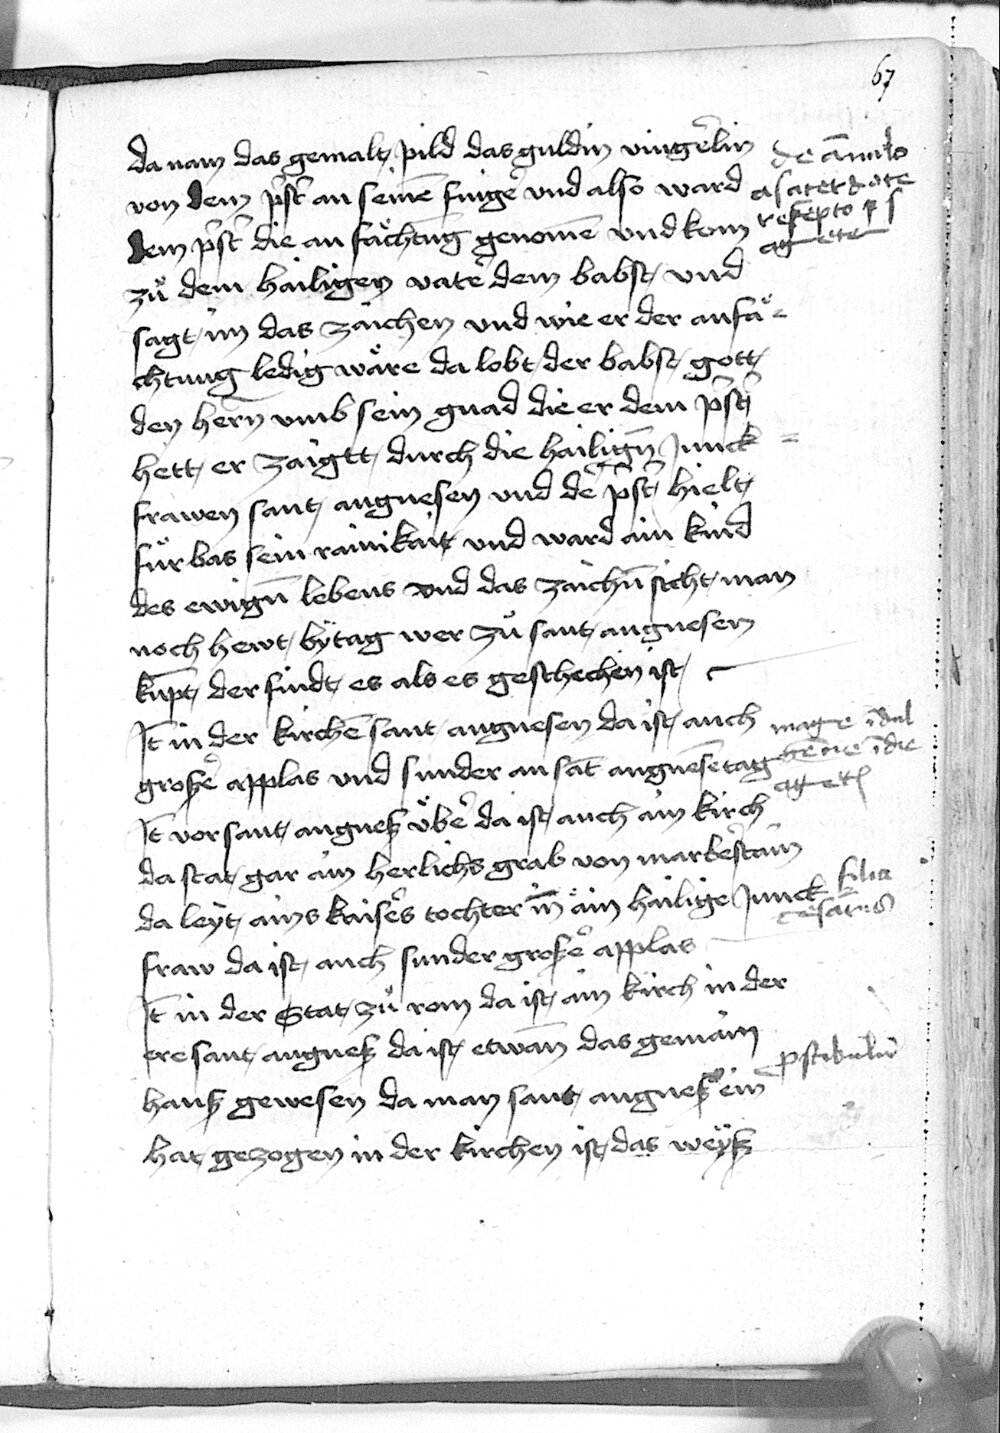 67
da nam das gemalt pild das guldin vingerlin
von dem pſt̄ an seinē finger vnd also ward
dem pſt̄ die an fächtūg genomē vnd kom
zů dem hailigen vater dem babst vnd
sagt im das zaichen vnd wie er der anfä=
chtung ledig wäre da lobt der babst gott
den hern̄ vmb sein gnad die er dem pſt̄
hett er zaigtt durch die hailign̄ Junck=
frawen sant angnesen vnd de pſt̄ hielt
für bas sein rainikait vnd ward ain kind
des ewign̄ lebens vnd das zaichn̄ sicht man
noch hewt bÿ tag wer zů sant angnesen
kūpt der findt es als es geschechen ist
Jt̄ in der kirchē sant angnesen da ist auch
großer applas vnd sunder an sāt angnesē tag
Jt̄ vor sant angneß über da ist auch ain kirch
da stat gar ain herlichs grab von marbelstain
da leÿt ains kaisers tochter ain hailige Junck
fraw da ist auch sunder großer applas
Jt̄ in der Stat zů rom da ist ain kirch in der
ere sant angneß da ist etwan̄ das gemain
hauß gewesen da man sant angneß ein
hat gezogen in der kirchen ist das weÿß
de ānulo
a sacerdote
recepto
agnete
filia
cesaris
pstibulū